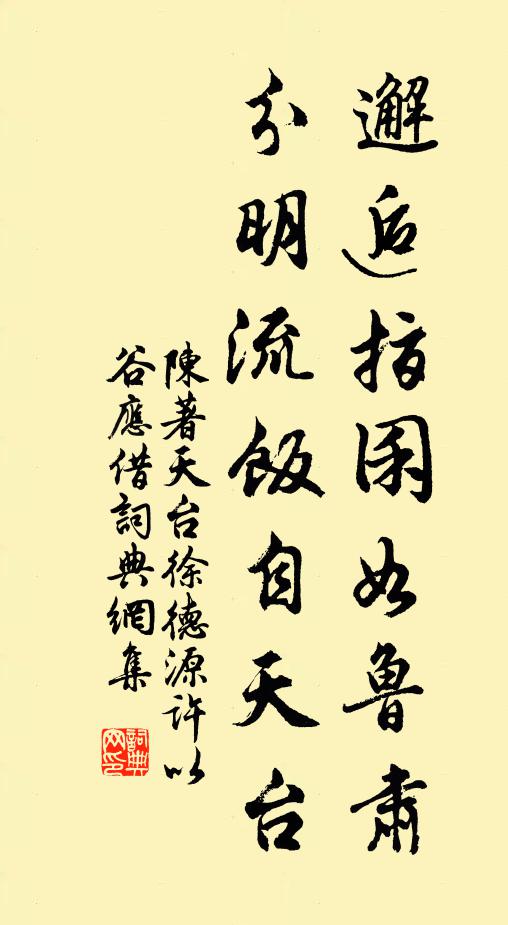 邂逅指囷如魯肅
分明流飯自天台
陳著天台徐德源許以
谷應借詞典網集
詞典網印